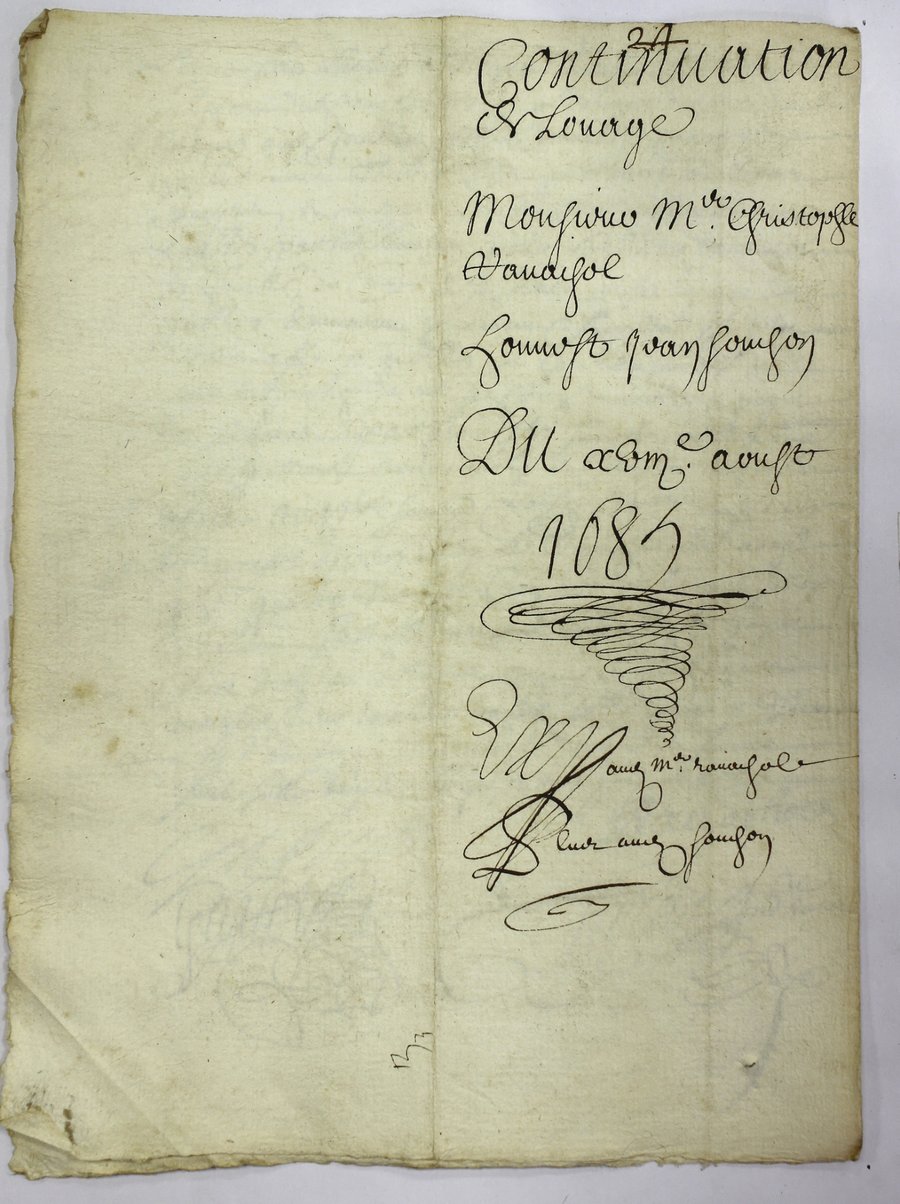 24
Continuation
de Louage
Monsieur M.re Christophle
Ravachol
Honnest Jean Souchon
DU xvme. aoust
1685
Exp
aud mre. ravachol
Plus aud souchon